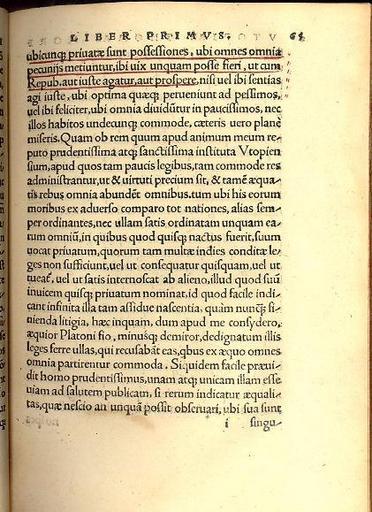 LIBER PRIMVS. 65
ubicunq; priuatæ sunt possessiones, ubi omnes omnia
pecunijs metiuntur, ibi uix unquam posse fieri, ut cum
Repub. aut iuste agatur, aut prospere, nisi uel ibi sentias
agi iuste, ubi optima quæq; perueniunt ad pessimos,
uel ibi feliciter, ubi omnia diuidũtur in paucissimos, nec
illos habitos undecunque commode, cæteris uero plane
miseris. Quam ob rem quum apud animum meum re-
puto prudentissima atq; sanctissima instituta Vtopien
sium, apud quos tam paucis legibus, tam commode res
administrantur, ut & uirtuti precium sit, & tamẽ æqua-
tis rebus omnia abundẽt omnibus. tum ubi his eorum
moribus ex aduerso comparo tot nationes, alias sem-
per ordinantes, nec ullam satis ordinatam unquam ea-
rum omniũ, in quibus quod quisq; nactus fuerit, suum
uocat priuatum, quorum tam multæ indies conditæ le-
ges non sufficiunt, uel ut consequatur quisquam, uel ut
tueat᷑, uel ut satis internoscat ab alieno, illud quod suũ
inuicem quisq; priuatum nominat, id quod facile indi-
cant infinita illa tam assidue nascentia, quàm nunq̃ fi-
nienda litigia, hæc inquam, dum apud me consydero,
æquior Platoni fio, minusq; demiror, dedignatum illis
leges ferre ullas, qui recusabãt eas, qbus ex æquo omnes
omnia partirentur commoda. Siquidem facile præui-
dit homo prudentissimus, unam atq; unicam illam esse
uiam ad salutem publicam, si rerum indicatur æquali-
tas, quæ nescio an unquã possit obseruari, ubi sua sunt
i singu-